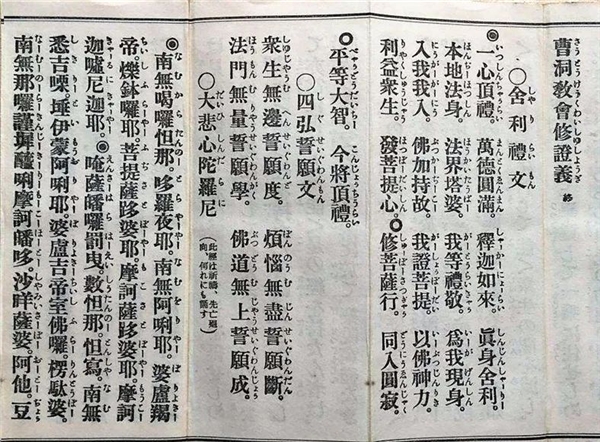 曹洞教會修證義 終
〇舍利禮文
◎一心頂禮。萬德圓滿。釋迦如來。眞身舍利。
本地法身。法界塔婆。我等禮敬。爲我現身。
入我我入。佛加持故。我證菩提。以佛神力。
利益衆生。發菩提心。◎修菩薩行。同入圓寂。
◎平等大智。今將頂禮。
〇四弘誓願文
衆生無邊誓願度。煩惱無盡誓願斷。
法門無量誓願學。佛道無上誓願成。
〇大悲心陀羅尼（此經は祈禱、先亡廻向、何れにも誦す）
◎南無喝囉怛那。哆羅夜耶。南無阿唎耶。婆盧羯
帝。爍鉢囉耶。菩提薩跢婆耶。摩訶薩跢婆耶。摩訶
迦嚧尼迦耶。◎唵薩皤囉罰曳。數怛那。怛寫。南無
悉吉㗚。埵伊蒙阿唎耶。婆盧吉帝室佛囉。楞駄婆。
南無那囉謹墀醯唎摩訶皤哆。沙咩薩婆。阿他。豆